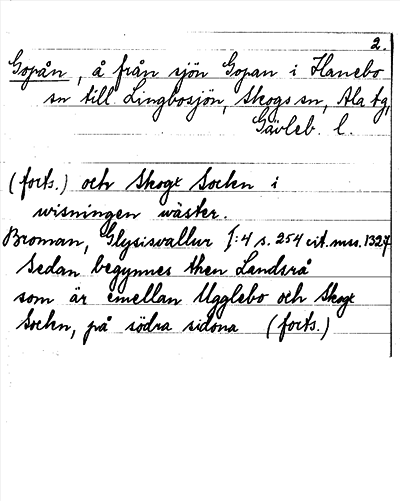 2.
Gopån, å från sjön Gopan i Hanebo
sn till Lingbosjön, Skogs sn, Ala tg,
Gävleb. l.
(forts.) och Skogz Socken i
wisningen wäster.
Broman, Glysisvallur I:4 s. 254 cit. mss. 1327
Sedan begynnes then Landsrå
som är emellan Ugglebo och Skogz
Socken, på södra sidona (forts.)